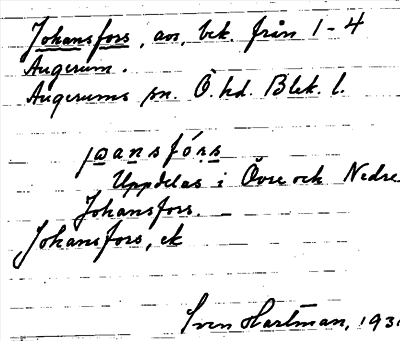 Johansfors, avs, bek. från 1-4
Augerum.
Augerums sn. Ö. hd. Blek. l.
jọansfórs
Uppdelas i Övre och Nedre
Johansfors. –
Johansfors, ek
Sven Hartman, 1931